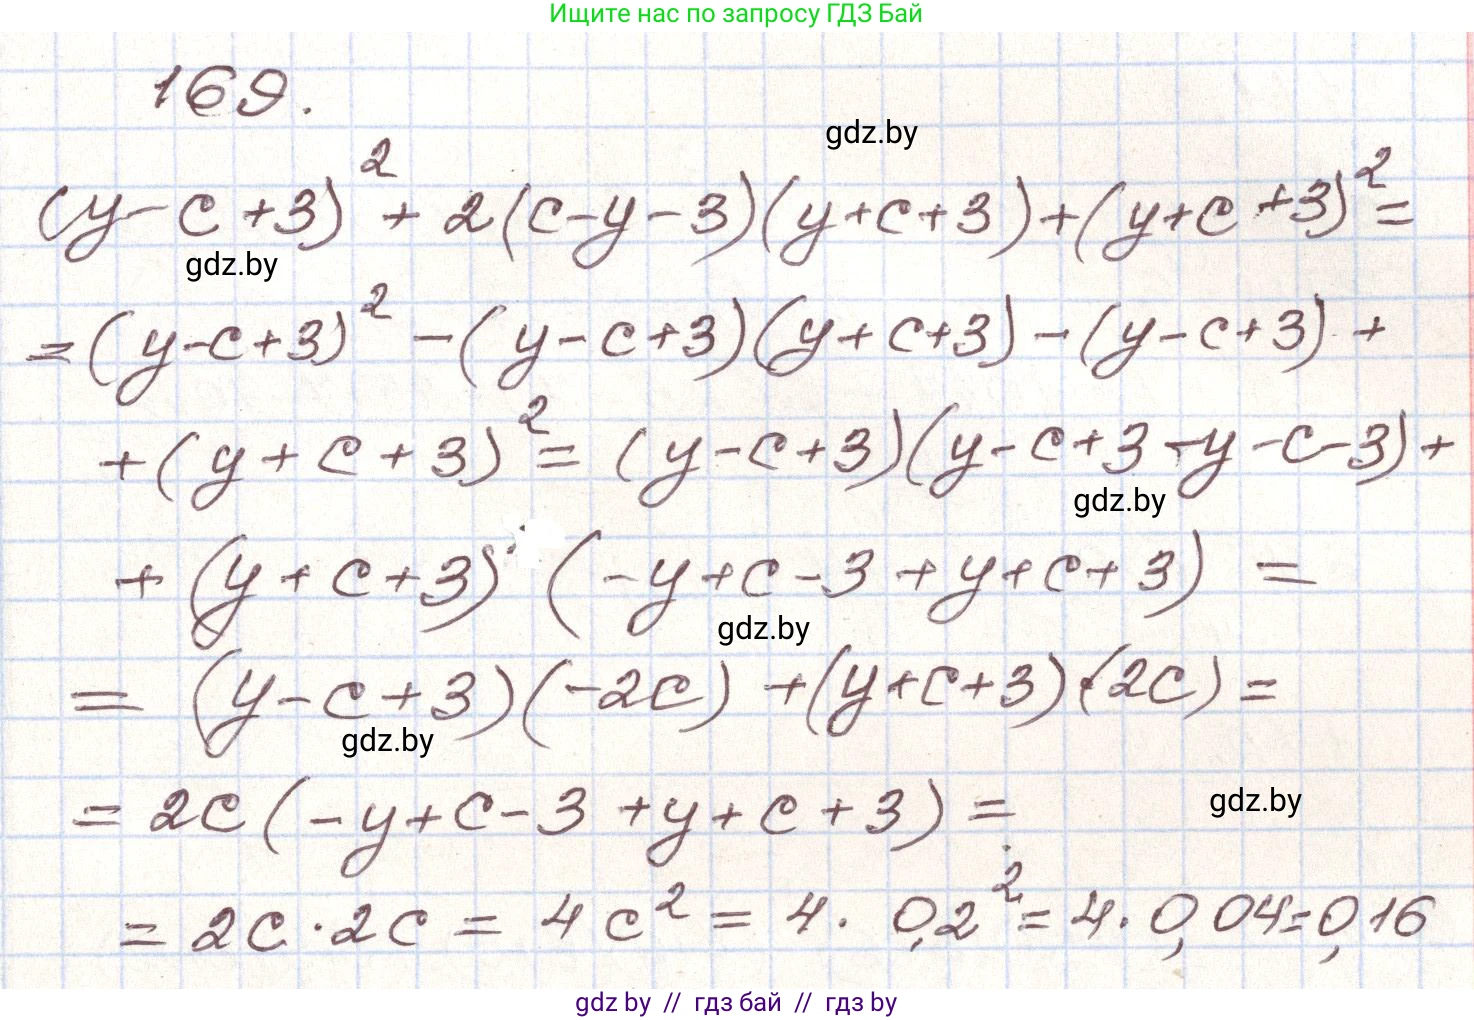 Ищите нас по запросу ГДЗ Бай
169.
gdz.by
(y-c+3)² + 2(c-y-3)(y+c+3)+(y+c+3)²=
gdz.by
=(y-c+3)² -(y-c+3)(y+c+3)-(y-c+3) +
+(y+c+3)²= (y-c+3)(y-c+3-y-c-3)+
gdz.by
+ (y+c+3) (-y+c-3+y+c+3) =
gdz.by
= (y-c+3)(-2c) +(y+c+3)·(2c) =
gdz.by
= 2c(-y+c-3+y+c+3) =
gdz.by
= 2c·2c = 4c² = 4· 0,2²= 4·0,04=0,16
gdz by // гдз бай // гдз by